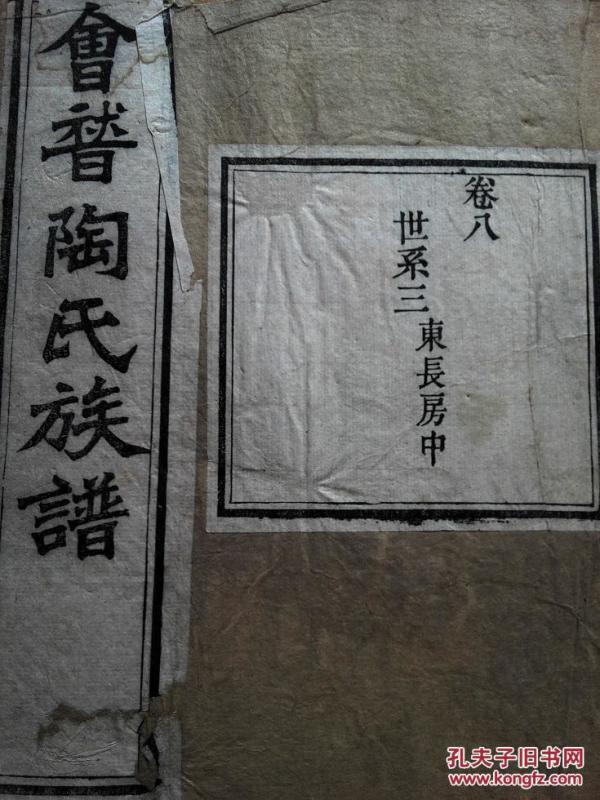 會稽陶氏族譜
卷八
世系三 東長房中
孔夫子旧书网
www.kongfz.com